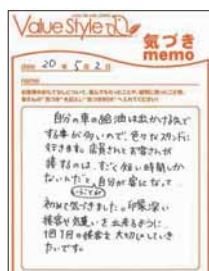 Value Style
気づき
memo
date 20年5月2日
name
自分の車の給油は出かける先で
する事が多いので、色々なスタンドに
行きます。店員とお客さんが
接するのは、すごく短い時間しか
ないんだと、自分が客になって
初めて気づきました。印象深い
接客や気遣いを出来るように
1日1日の接客を大切にしていき
たいです。